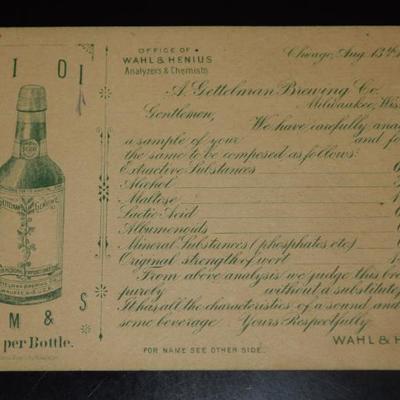 OFFICE OF
WAHL & HENIUS
Analyzers & Chemists
Chicago, Aug. 13th
A. Gettelman Brewing Co.
Milwaukee, Wis
Gentlemen,
We have carefully anal
a sample of your and fo
the same to be composed as follows:
Extractive Substances
Alcohol
Maltose
Lactic Acid
Albumenoids
Mineral Substances (phosphates etc)
Original strength of wort
From above analysis we judge this bre
purely without a substitute
It has all the characteristics of a sound and
some beverage Yours Respectfully
WAHL & H
FOR NAME SEE OTHER SIDE.
I O I
M & S
per Bottle.